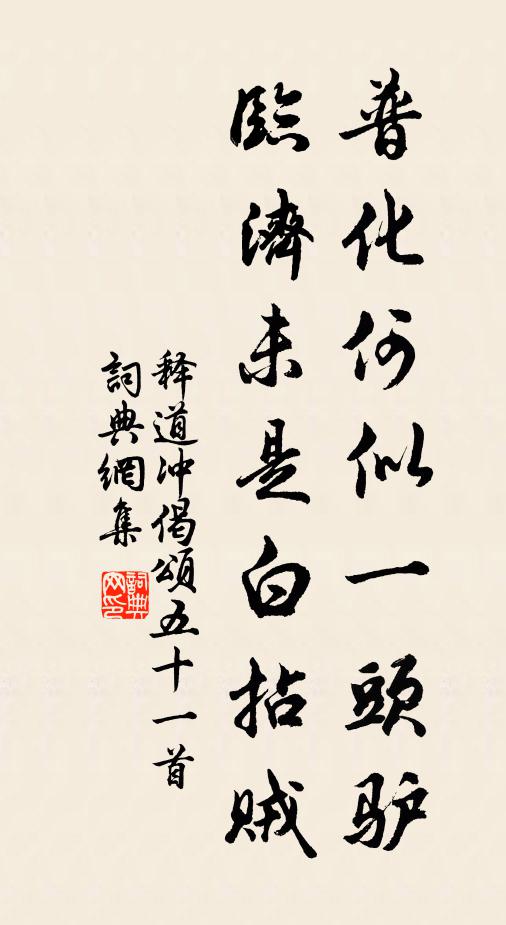 普化何似一頭驴
臨濟未是白拈贼
释道冲偈頌五十一首
詞典網集
詞典网印